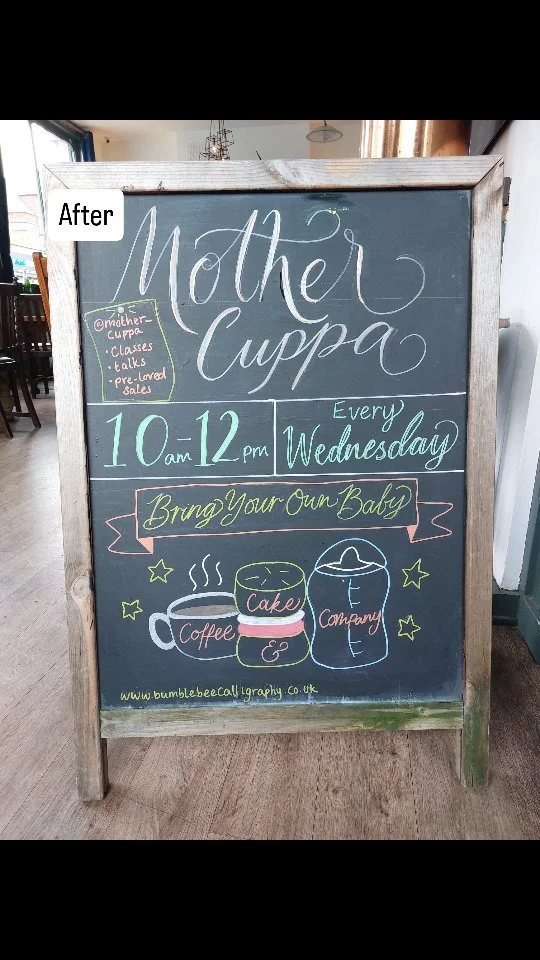 After
Mother
Cuppa
@mother_
cuppa
• Classes
• talks
• pre-loved
sales
10am-12pm
Every
Wednesday
Bring Your Own Baby
Coffee
Cake
&
Company
www.bumblebeecalligraphy.co.uk